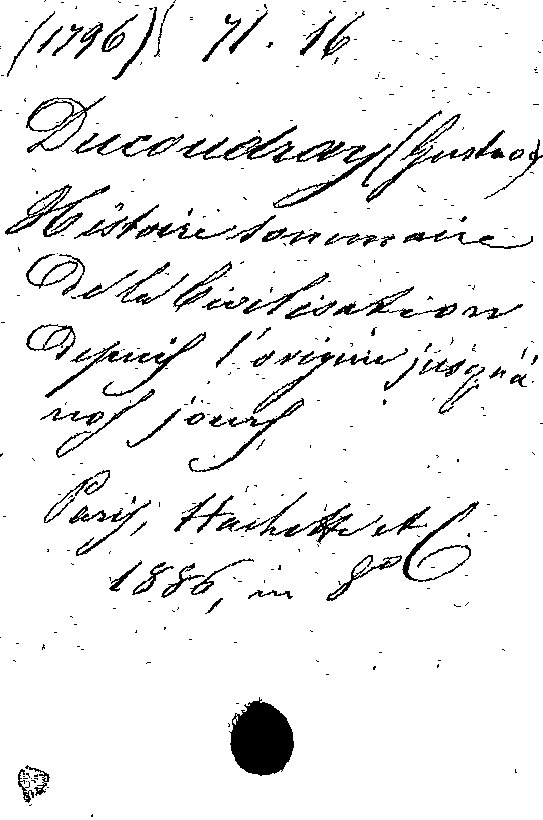 (1796) 71. 16
Ducoudray (Gustave)
Histoire sommaire
De la Civilisation
depuis l'origine jusqu'à
nos jours
Paris, Hachette et C
1886, in 8°